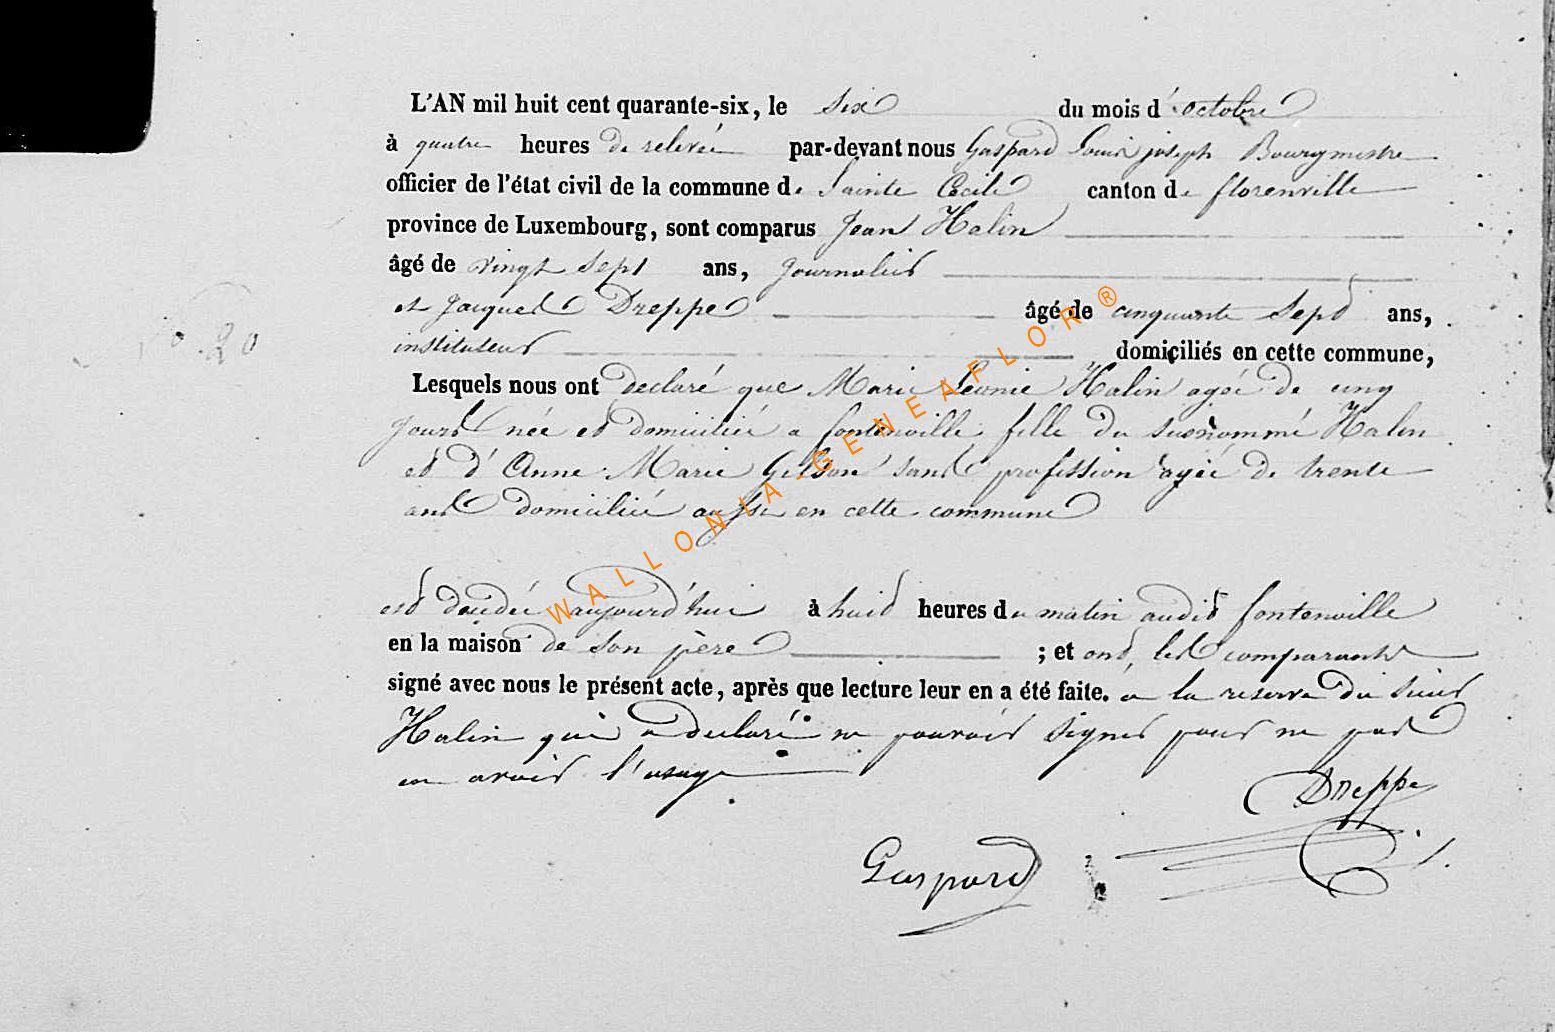 L'AN mil huit cent quarante-six, le six du mois d'octobre
à quatre heures de relevée par-devant nous Gaspard Louis joseph Bourgmestre
officier de l'état civil de la commune de Sainte Cecile canton de florenville
province de Luxembourg, sont comparus Jean Halin
âgé de vingt sept ans, journalier
et Jacques Dreppe âgé de cinquante sept ans,
N° 20
instituteur domiciliés en cette commune,
Lesquels nous ont declaré que Marie Leonie Halin agée de cinq
jours née et domiciliée a fontenville fille du susnommé Halin
et d'Anne Marie Gilson sans profession agée de trente
ans domiciliée aussi en cette commune
est decidée aujourd'hui à huit heures du matin audit fontenville
en la maison de son père ; et ont les comparants
signé avec nous le présent acte, après que lecture leur en a été faite. a la reserve du sieur
Halin qui a declaré ne pouvoir signer pour ne pas
en avoir l'usage
Dreppe
Gaspard
WALLONIA GENEAFLOR®